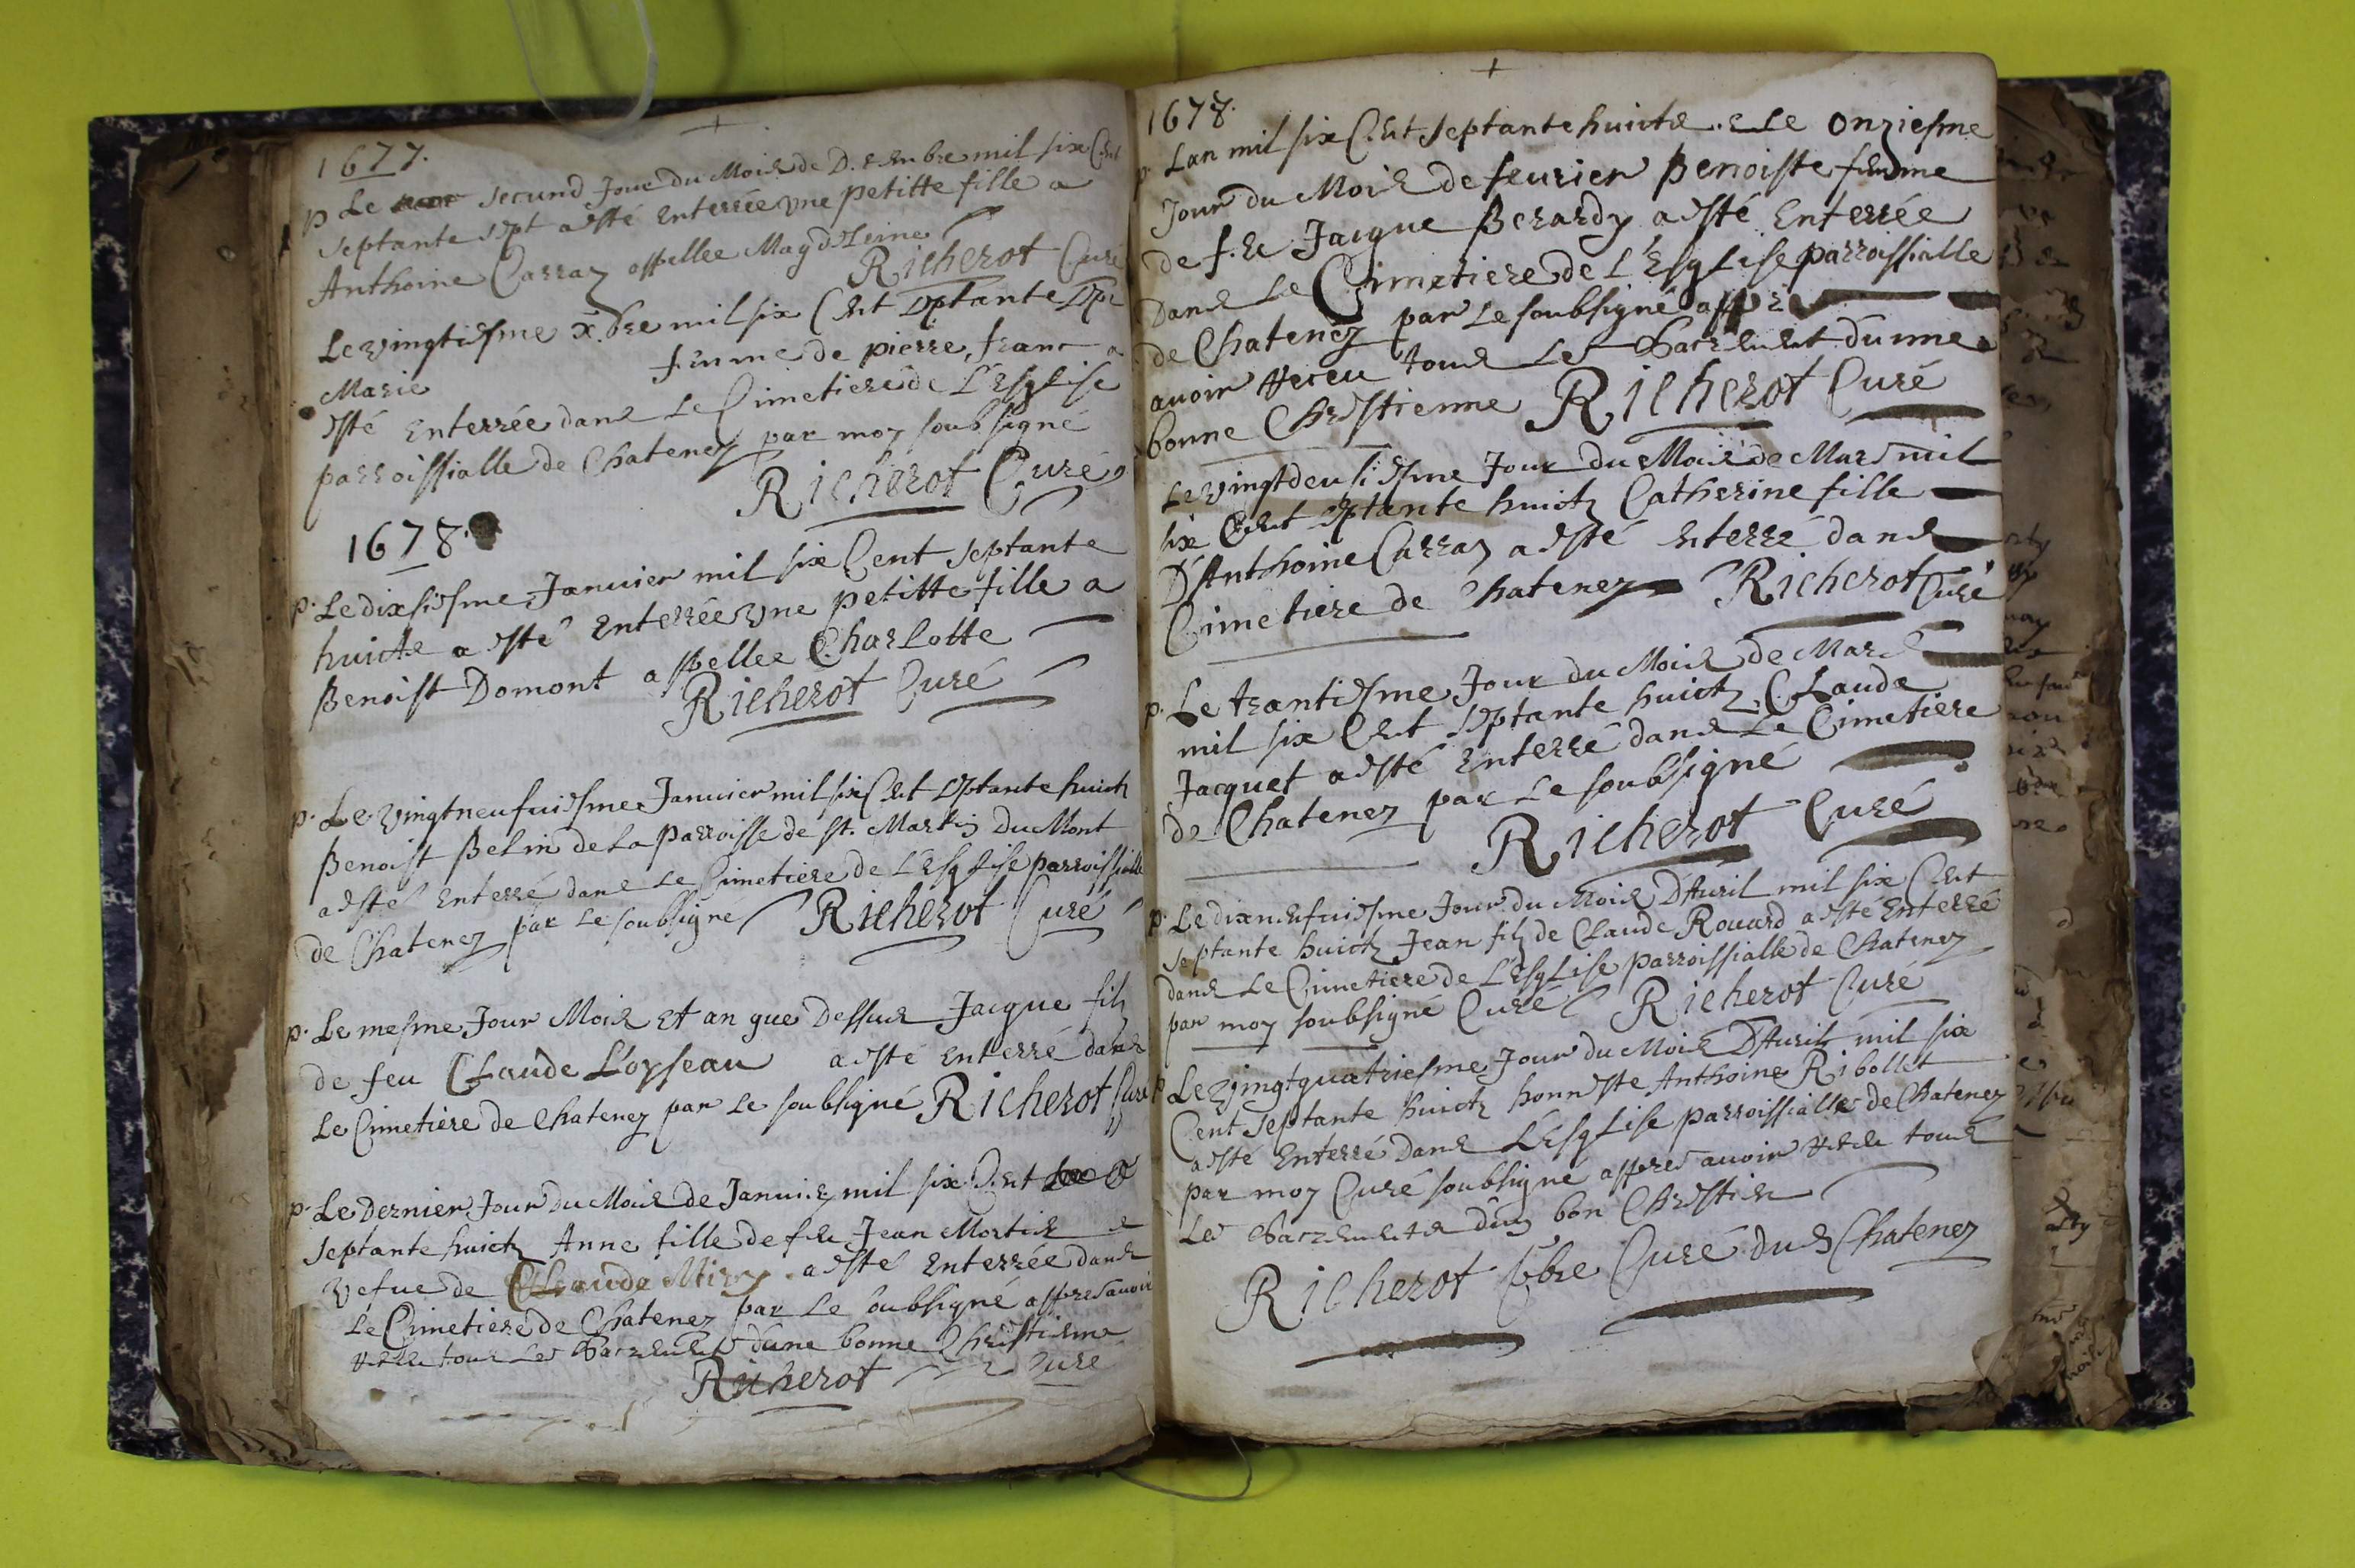 +
1677.
p Le secund Jour du Mois de Decenbre mil six Cent
septante sept a esté Enterrée vne petitte fille a
Anthoine Carraz appellee Magdeleine
Richerot Curé
Le vingtiesme x.bre mil six Cent septante sept
Marie femme de pierre franc a
esté Enterrée dans Le Cimetiere de L'Esglise
parroissialle de Chatenez par moy soubsigné
Richerot Curé
1678.
p. Le dixsiesme Januier mil six Cent septante
huicte a esté Enterrée vne petitte fille a
Benoist Domont appellee CharLotte
Richerot Curé
p. Le vingtneufuiesme Januier mil six Cent septante huict
Benoist Belin de La Parroisse de St. Martin Du Mont
a esté Enterré dans Le Cimetiere de L'EsgLise parroissialle
de Chatenez par Le soubsigné Richerot Curé
p. Le mesme Jour Mois Et an que Dessus Jacque filz
de feu CLaude L'oyseau a esté Enterré dans
Le Cimetiere de Chatenez par Le soubsigné Richerot Curé
p. Le Dernier Jour du Mois de Januier mil six Cent
septante huict Anne fille de feu Jean Mortier
vefue de CLaude a esté Enterrée dans
Le Cimetiere de Chatenez par Le soubsigné appres auoir
receu tous Les Sacremens dune bonne Chrestienne
Richerot Curé
+
1678.
p. Lan mil six Cent septante huicte Le Onziesme
Jour du Mois de feurier Benoiste femme
de feu Jacque Berardy a esté Enterrée
Dans Le Cimetiere de L'EsgLise parroissialle
de Chatenez par Le soubsigné appres
auoir Receu tous Les Sacrement dunne
bonne Chrestienne Richerot Curé
Le vingtdeusiesme Jour du Mois de Mars mil
six Cent septante huict Catherine fille
D'Anthoine Carraz a esté Enterré dans
Cimetiere de Chatenez Richerot Curé
p. Le trantiesme Jour du Mois de Mars
mil six Cent septante huict CLaude
Jacquet a esté Enterré dans Le Cimetiere
de Chatenez par Le soubsigné
Richerot Curé
p. Le dixneufuiesme Jour du Mois D'Auril mil six Cent
septante huict Jean filz de CLaude Rouard a esté Enterré
dans Le Cimetiere de L'EsgLise parroissialle de Chatenez
par moy soubsigné Curé Richerot Curé
p Le vingtquatriesme Jour du Mois D'Auril mil six
Cent septante huict honneste Anthoine Ribollet
a esté Enterré Dans L'EsgLise parroissialle de Chatenez
par moy Curé soubsigné appres auoir receu tous
Les Sacrements dun bon Chrestien
Richerot Curé dud Chatenez